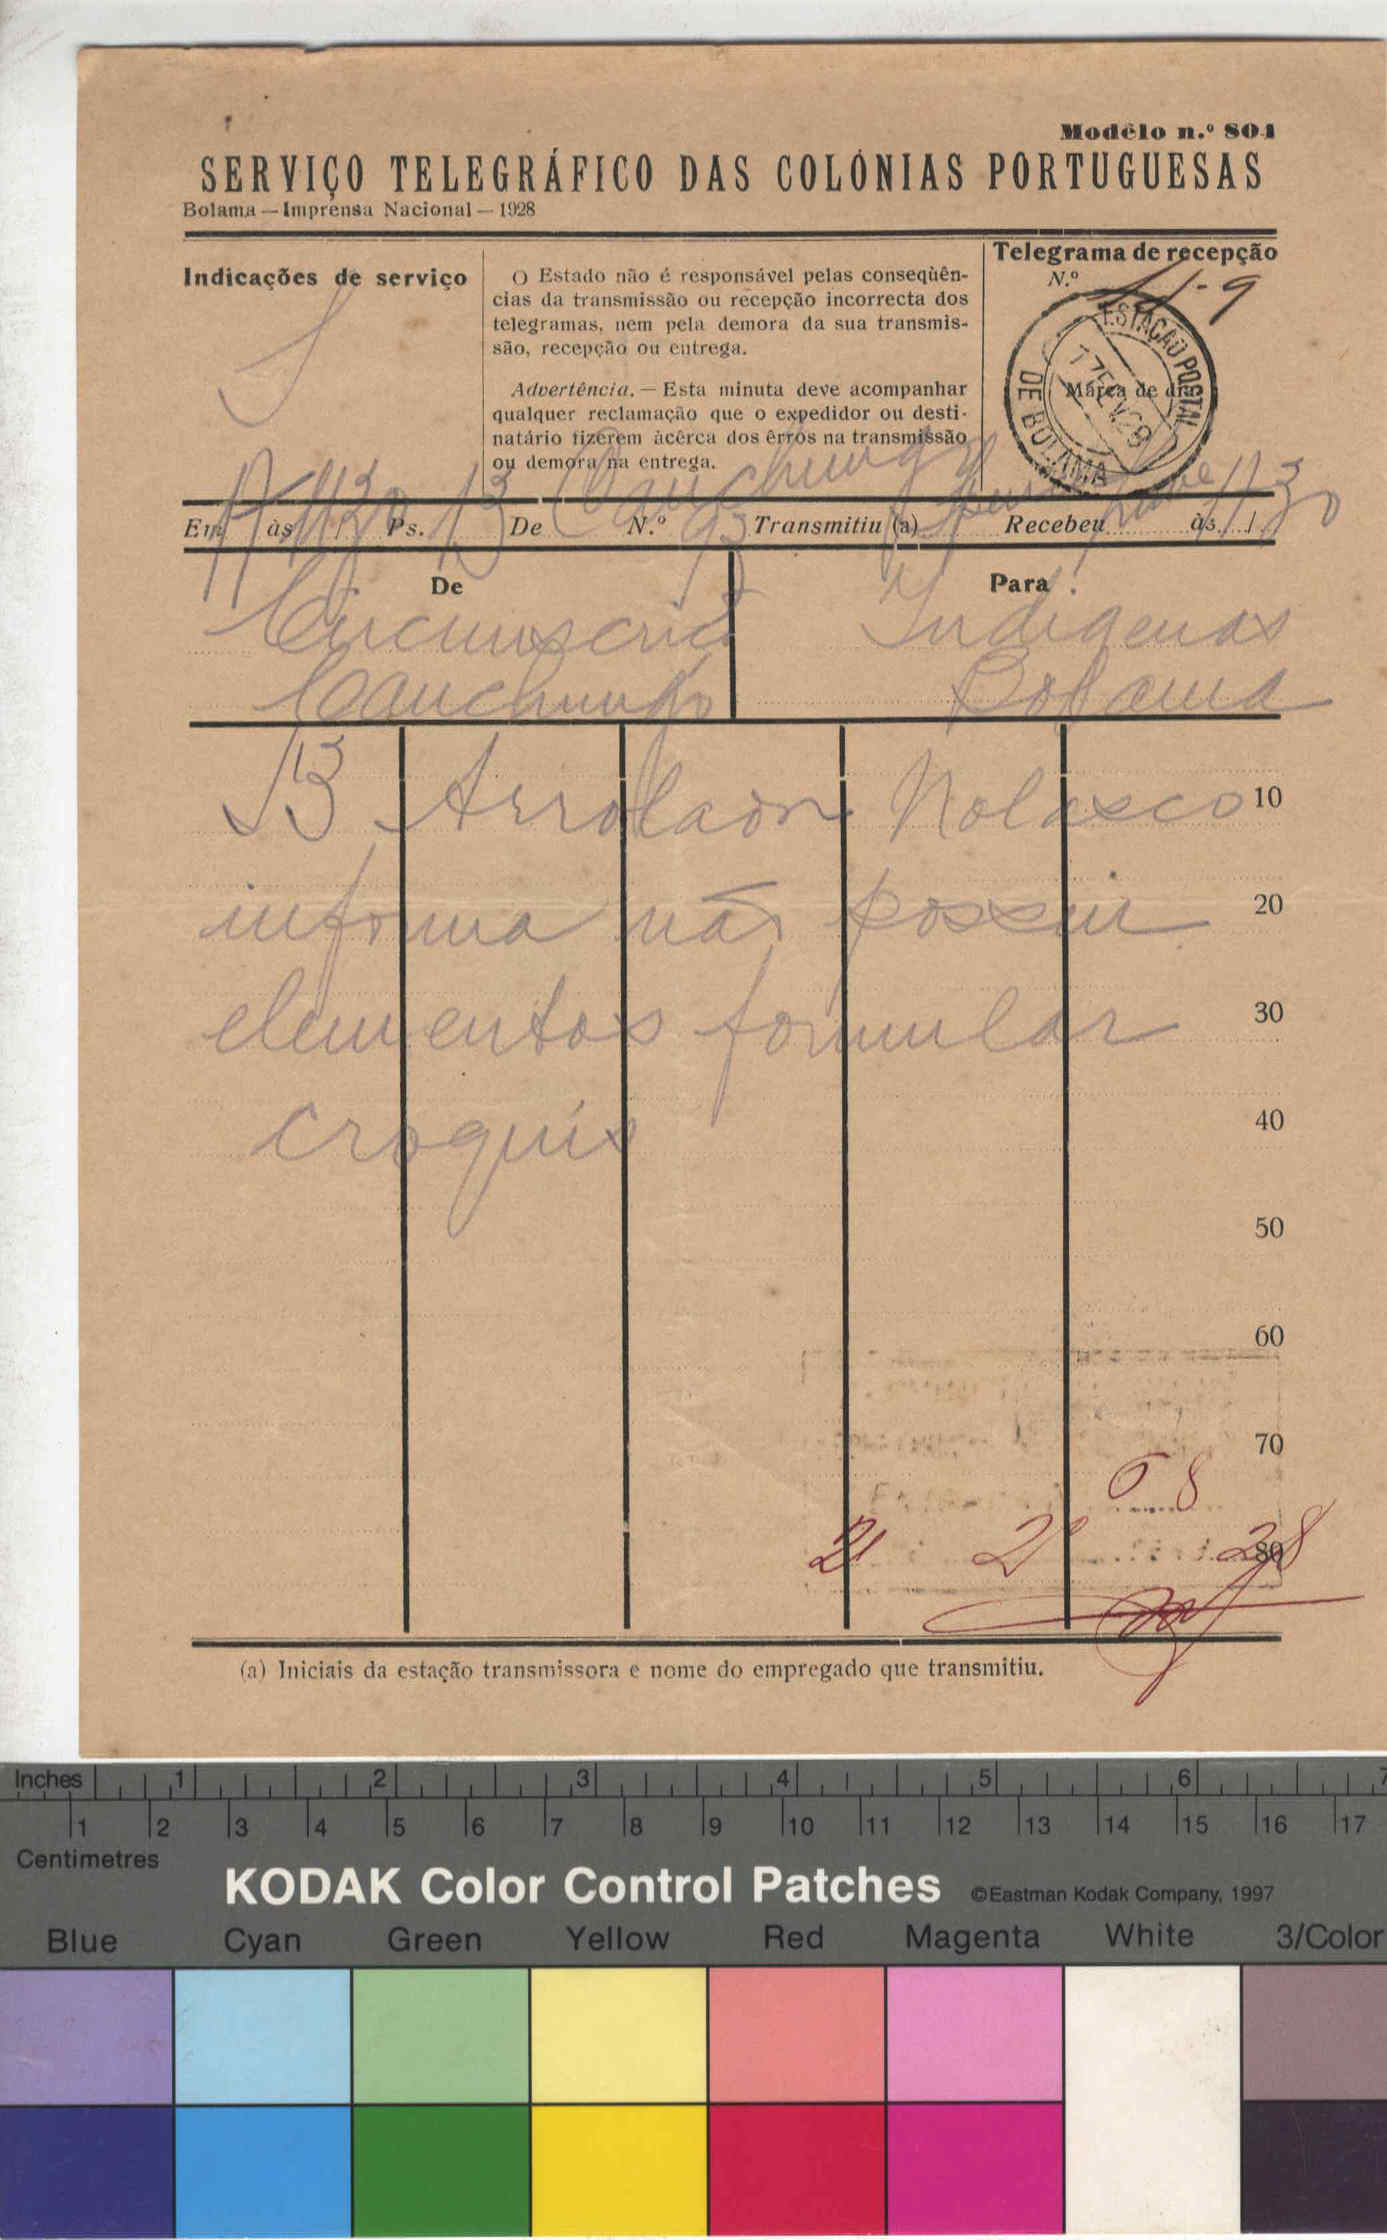 Modêlo n.º 804
SERVIÇO TELEGRÁFICO DAS COLÓNIAS PORTUGUESAS
Bolama — Imprensa Nacional — 1928
Indicações de serviço
S
O Estado não é responsável pelas conseqùên-
cias da transmissão ou recepção incorrecta dos
telegramas, nem pela demora da sua transmis-
são, recepção ou entrega.
Advertência. — Esta minuta deve acompanhar
qualquer reclamação que o expedidor ou desti-
natário fizerem àcêrca dos êrros na transmissão
ou demora na entrega.
Telegrama de recepção
N.º
Marca de dia
ESTAÇÃO POSTAL DE BOLAMA
Em às / Ps. De N.º Transmitiu (a) Recebeu às /
17 1130 13 Canchungo 93 1130
De
Circunscrição
Canchungo
Para
Indigenas
Bolama
13 Arrolador Nolasco
informa não possuir
elementos formular
croquis
10
20
30
40
50
60
70
80
68
21 2 28
(a) Iniciais da estação transmissora e nome do empregado que transmitiu.
Inches 1 2 3 4 5 6 7
1 2 3 4 5 6 7 8 9 10 11 12 13 14 15 16 17
Centimetres
KODAK Color Control Patches ©Eastman Kodak Company, 1997
Blue Cyan Green Yellow Red Magenta White 3/Color